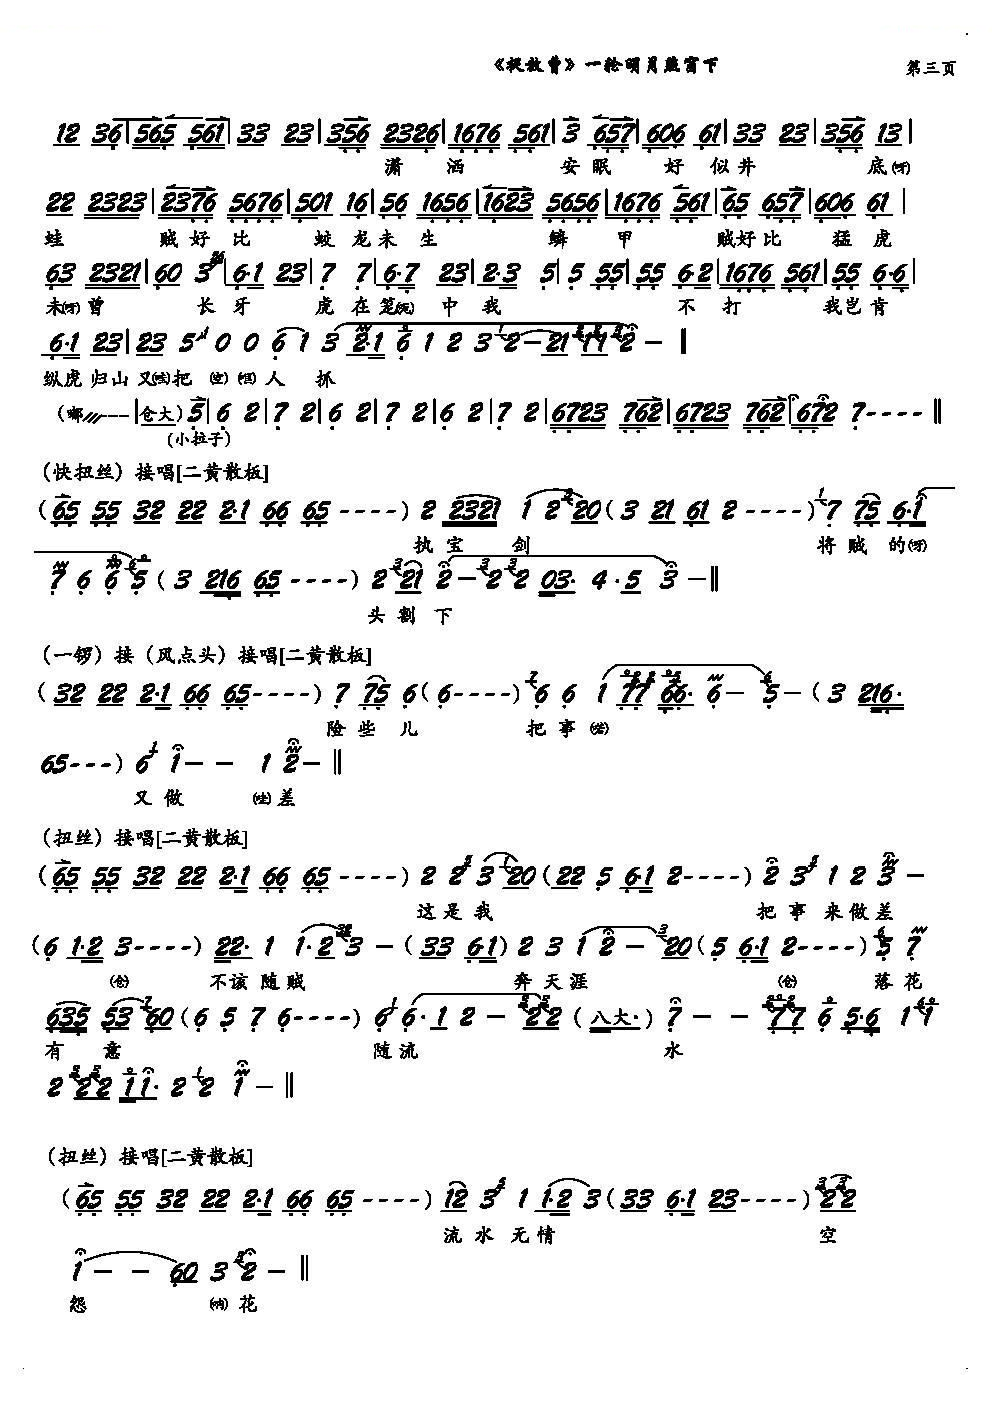 《捉放曹》一轮明月照窗下 第三页
12 36|565 561|33 23|356 2326|1676 561|3 657|606 61|33 23|356 13|
潇 洒 安 眠 好 似 井 底(呀)
22 2323|2376 5676|501 16|56 1656|1623 5656|1676 561|65 657|606 61|
蛙 贼 好 比 蛟 龙 未 生 鳞 甲 贼 好 比 猛 虎
63 2321|60 3|6·1 23|7 7|6·7 23|2·3 5|5 55|55 6·2|1676 561|55 6·6|
未(呀)曾 长 牙 虎 在 笼 中 我 不 打 我 岂 肯
6·1 23|23 5 0 0 6 1 3 2·1 6 1 2 3 2-21 11 2 - ‖
纵 虎 归 山 又 把 人 抓
(嘟---|仓大)5|6 2|7 2|6 2|7 2|6 2|7 2|6723 762|6723 762|672 7---- ‖
(小拉子)
(快扭丝)接唱[二黄散板]
(65 55 32 22 2·1 66 65 ----) 2 2321 1 2 20(3 21 61 2----) 7 75 6·1
执 宝 剑 将 贼 的(呀)
7 6 6 5(3 216 65 ---) 2 21 2-2 2 03· 4·5 3 -‖
头 割 下
(一锣)接(风点头)接唱[二黄散板]
(32 22 2·1 66 65----) 7 75 6(6----) 6 6 1 77 66· 6- 5-(3 216·
险 些 儿 把 事
65---) 6 1-- 1 2-‖
又 做 (哇)差
(扭丝)接唱[二黄散板]
(65 55 32 22 2·1 66 65 ----) 2 2 3 20(22 5 6·1 2----) 2 3 1 2 3 -
这 是 我 把 事 来 做 差
(6 1·2 3----) 22· 1 1·2 3 -(33 6·1) 2 3 1 2 - 20(5 6·1 2----) 5 7
(仓) 不 该 随 贼 奔 天 涯 (仓) 落 花
635 53 60(6 5 7 6----) 6 6·1 2 - 22(八大·) 7 - - 77 6 5·6 1 1
有 意 随 流 水
2 22 11· 2 2 1 -‖
(扭丝)接唱[二黄散板]
(65 55 32 22 2·1 66 65 ----) 12 3 1 1·2 3(33 6·1 23----) 22
流 水 无 情 空
1 - - 60 3 2 -‖
怨 (呐)花